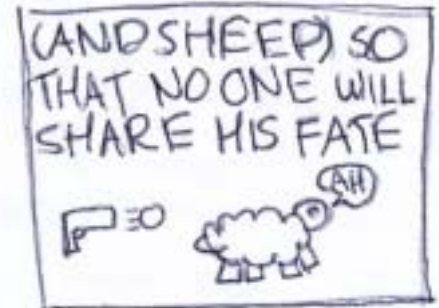 (AND SHEEP) SO
THAT NO ONE WILL
SHARE HIS FATE
AH